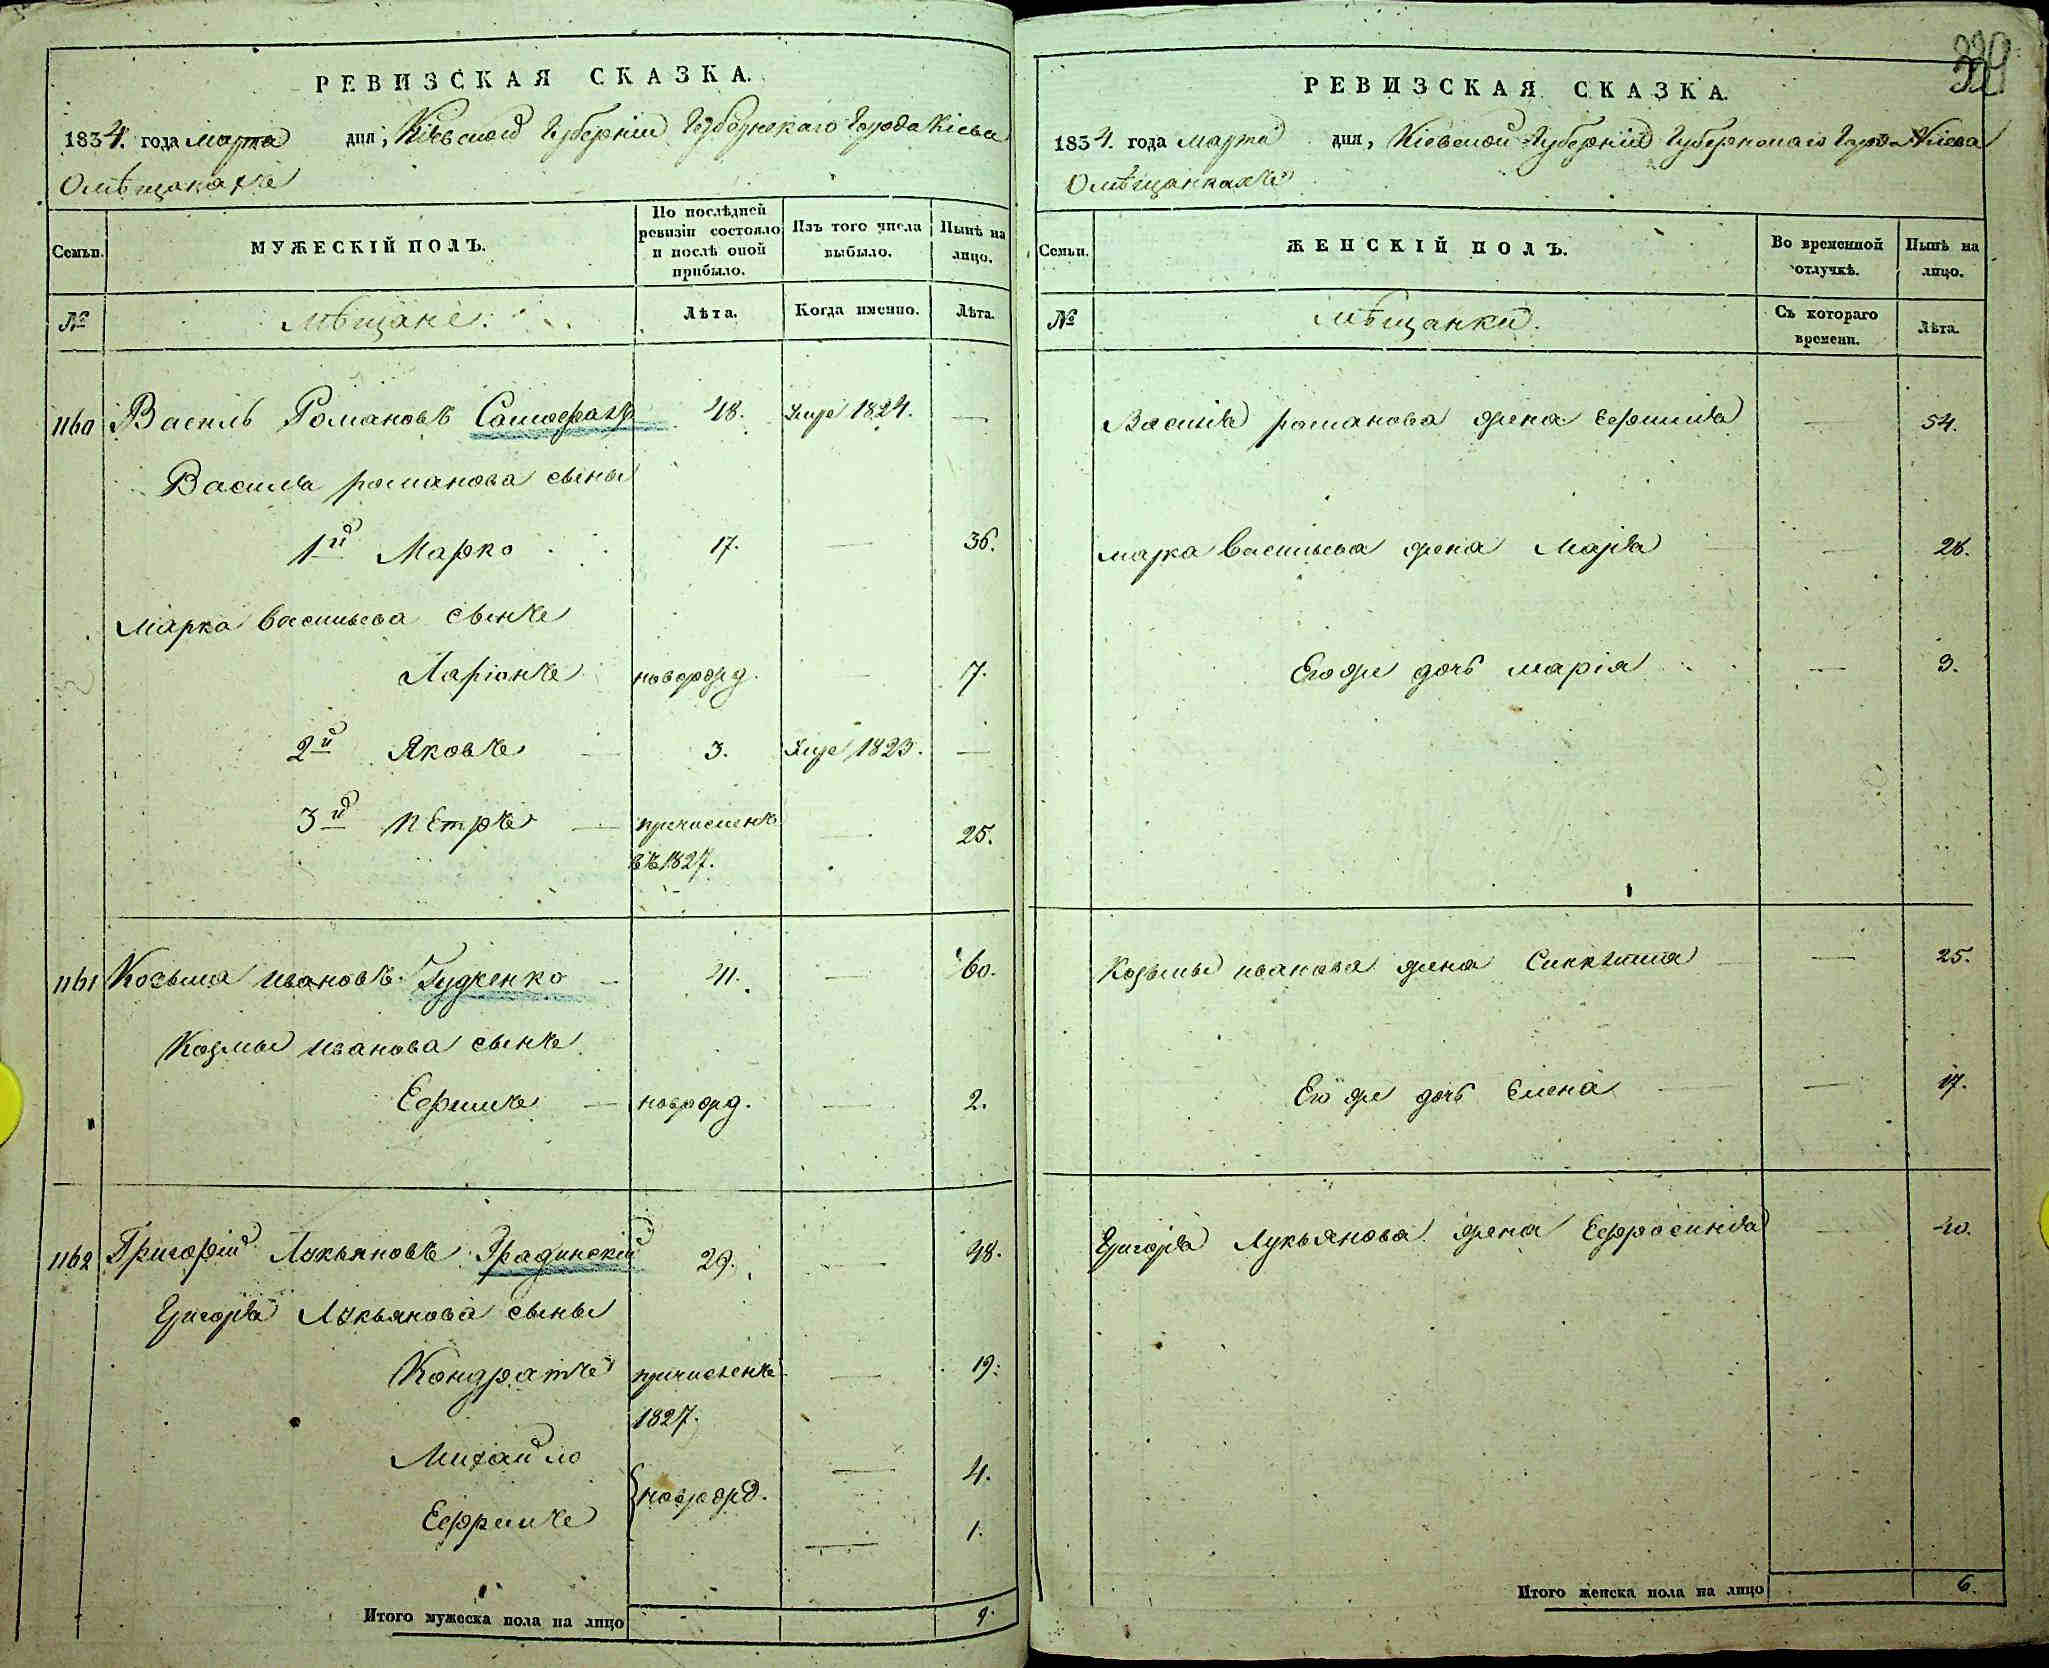 РЕВИЗСКАЯ СКАЗКА.
1834. года марта дня, Кіевской Губерніи Губернскаго Города Кіева
О мѣщанахъ
Семьи.
МУЖЕСКІЙ ПОЛЪ.
По послѣдней ревизіи состояло и послѣ оной прибыло.
Изъ того числа выбыло.
Нынѣ на лицо.
№
Мѣщане.
Лѣта.
Когда именно.
Лѣта.
1160 Василь Романовъ 48. 1824. —
Василія романова сыны
1й Марко 17. — 36.
Марка васильева сынъ
Ларіонъ новорожд. — 7.
2й Яковъ 3. 1823. —
3й Петръ — причисленъ — 25.
въ 1827.
1161 Козьма Ивановъ Гудженко 41. — 60.
Козмы иванова сынъ
Ефимъ — новорожд. — 2.
1162 Григорій Лукьяновъ Градинскій 29. — 48.
Григорія Лукьянова сыны
Кондратъ причисленъ — 19.
1827.
Михайло — 4.
новорожд.
Ефримъ — 1.
Итого мужеска пола на лицо 9.
РЕВИЗСКАЯ СКАЗКА.
1834. года марта дня, Кіевской Губерніи Губернскаго Города Кіева
О мѣщанкахъ
Семьи.
ЖЕНСКІЙ ПОЛЪ.
Во временной отлучкѣ.
Нынѣ на лицо.
№
Мѣщанки.
Съ котораго времени.
Лѣта.
Василія романова жена Ефимія — 54.
Марка васильева жена Марія — 28.
Его же дочь марія — 3.
Козьмы иванова жена Синклитія — 25.
Его же дочь Елена — 17.
Григорія Лукьянова жена Ефросинія — 40.
Итого женска пола на лицо 6.